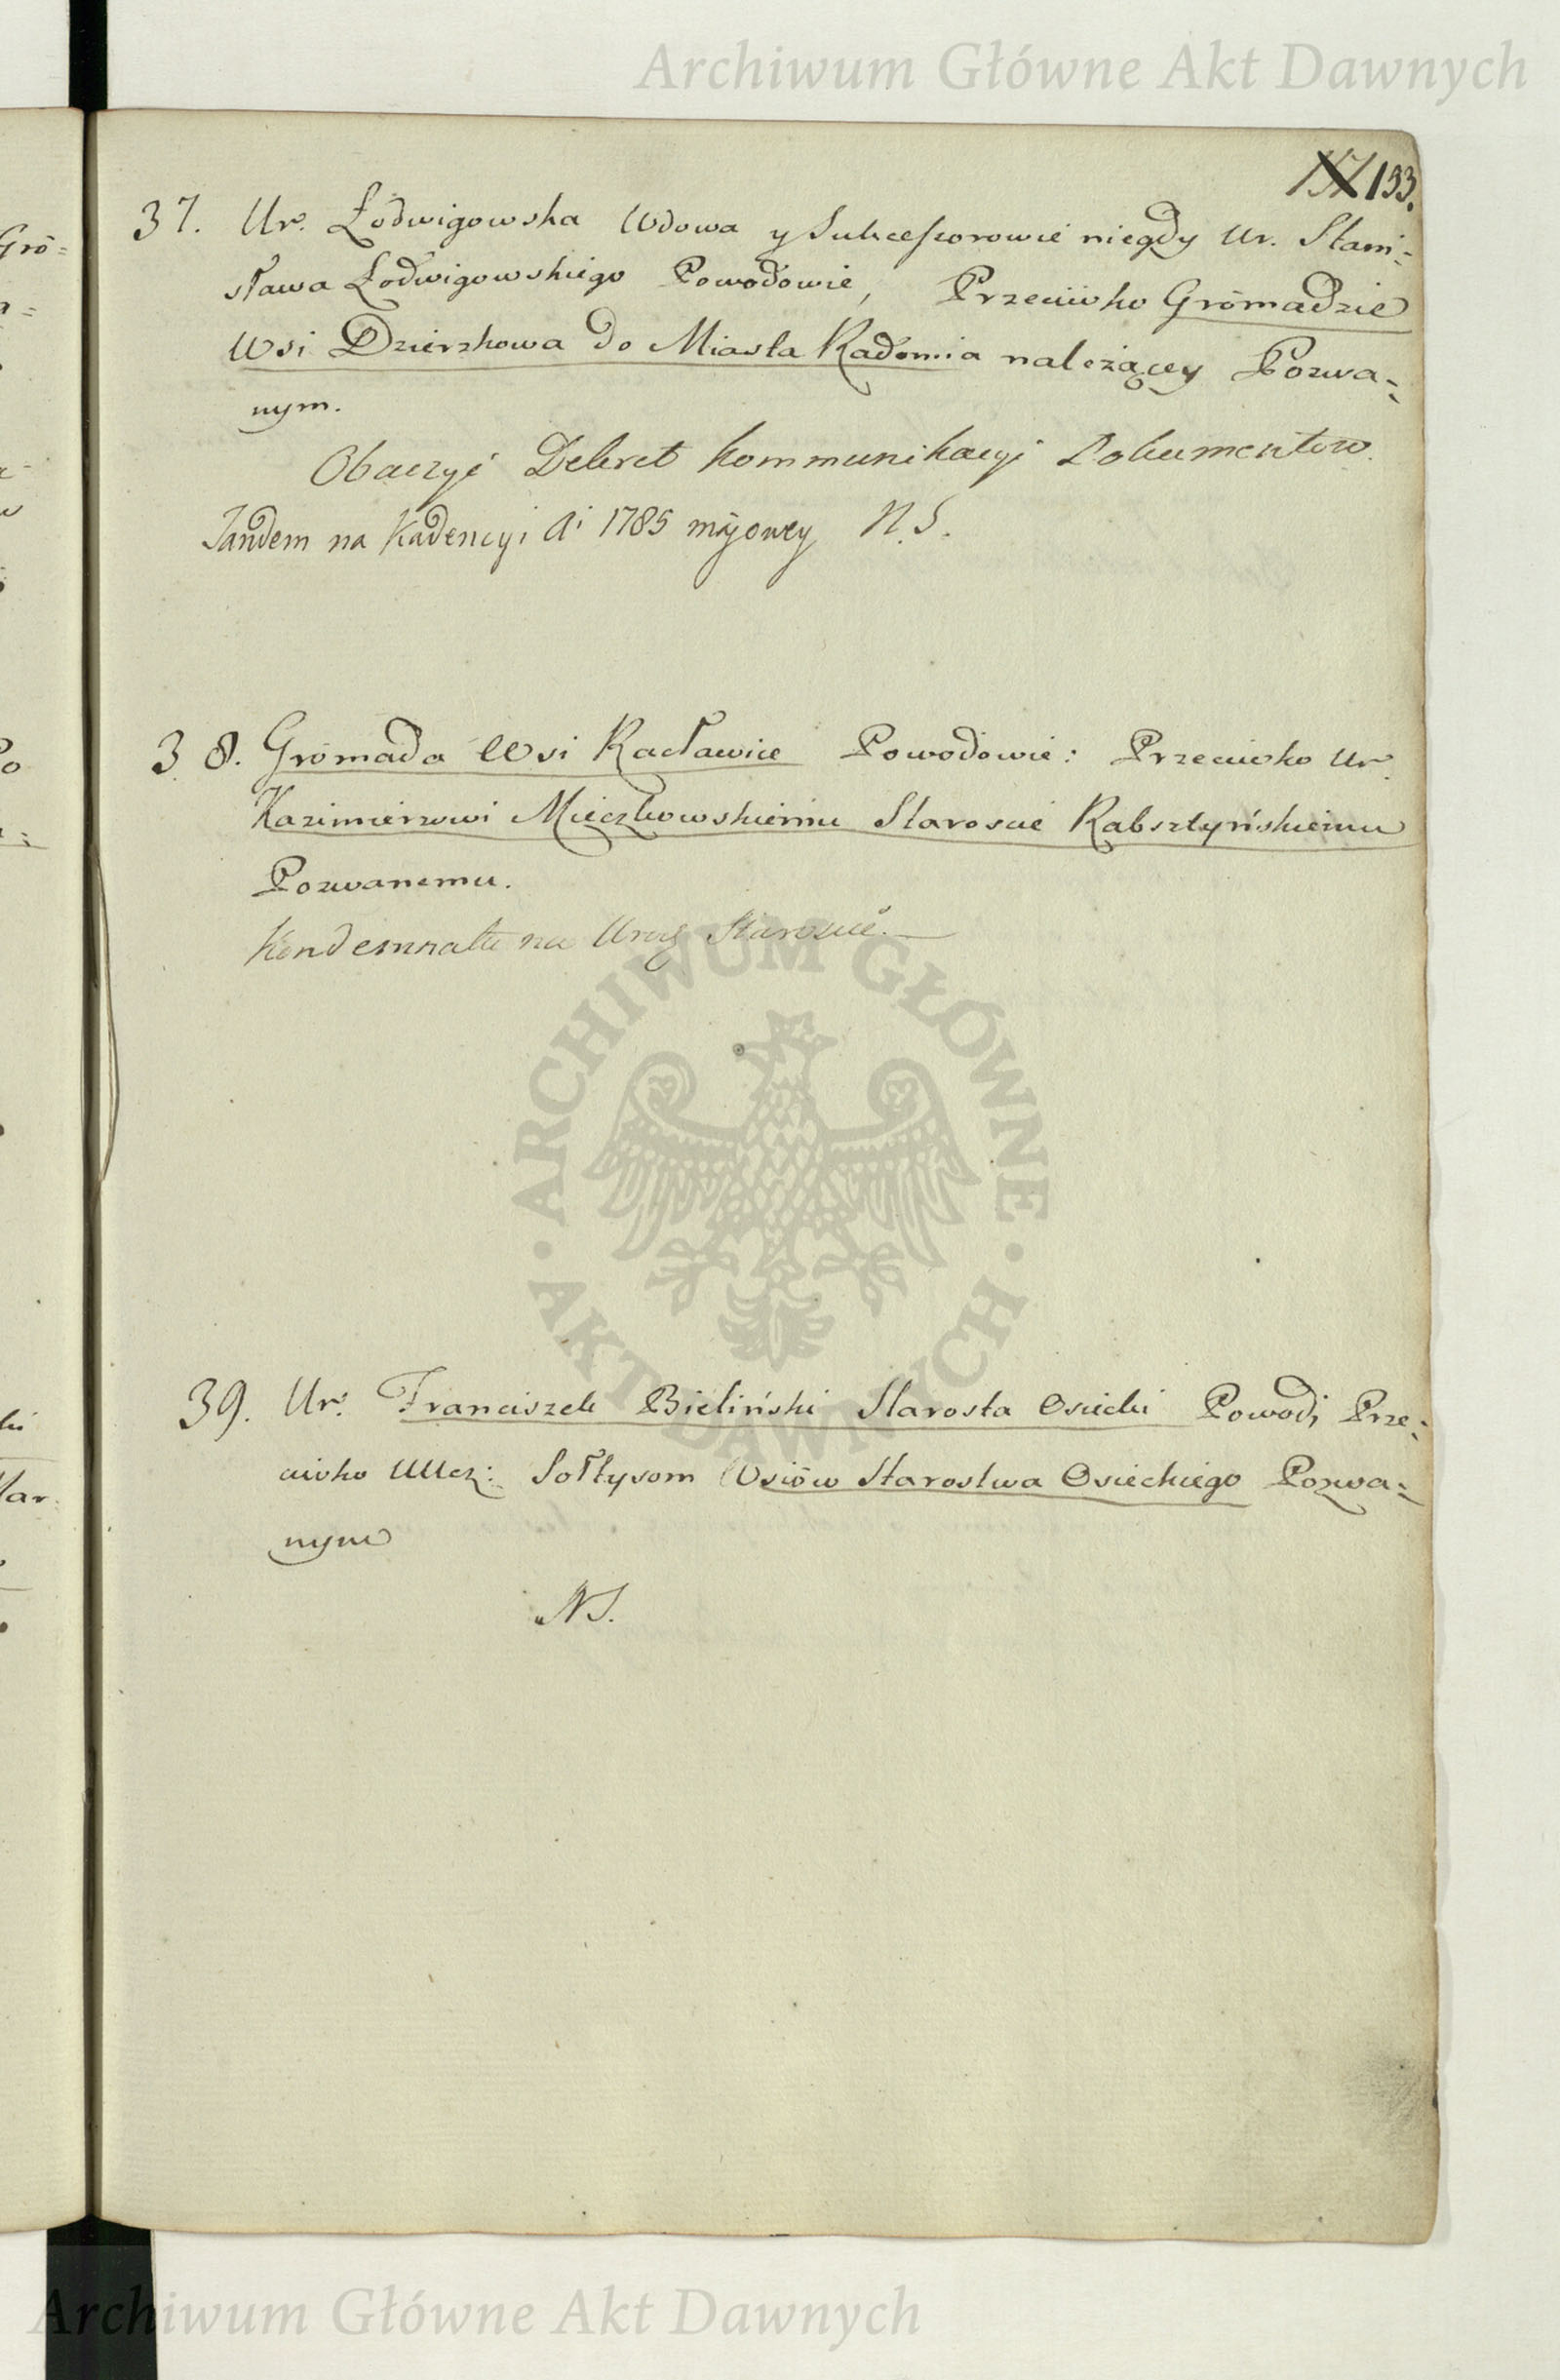 Archiwum Główne Akt Dawnych
133.
37. Ur. Łodwigowska Wdowa y Sukcessorowie niegdy Ur. Stani-
sława Łodwigowskiego Powodowie, Przeciwko Grómadzie
Wsi Dzierzkowa do Miasta Radomia należącey Pozwa-
nym.
Obaczyć Dekret kommunikacyi Dokumentow.
Tandem na Kadencyi Ai 1785 majowey N.S.
38. Grómada Wsi Racławice Powodowie: Przeciwko Ur.
Kazimierzowi Mieczkowskiemu Staroscie Rabsztyńskiemu
Pozwanemu.
Kondemnata na Urog Staroscie.
ARCHIWUM GŁÓWNE AKT DAWNYCH
39. Ur. Franciszek Bieliński Starosta Osiecki Powod, Prze-
ciwko UUcz: Sołtysom Wsiów Starostwa Osieckiego Pozwa-
nym
NS.
Archiwum Główne Akt Dawnych